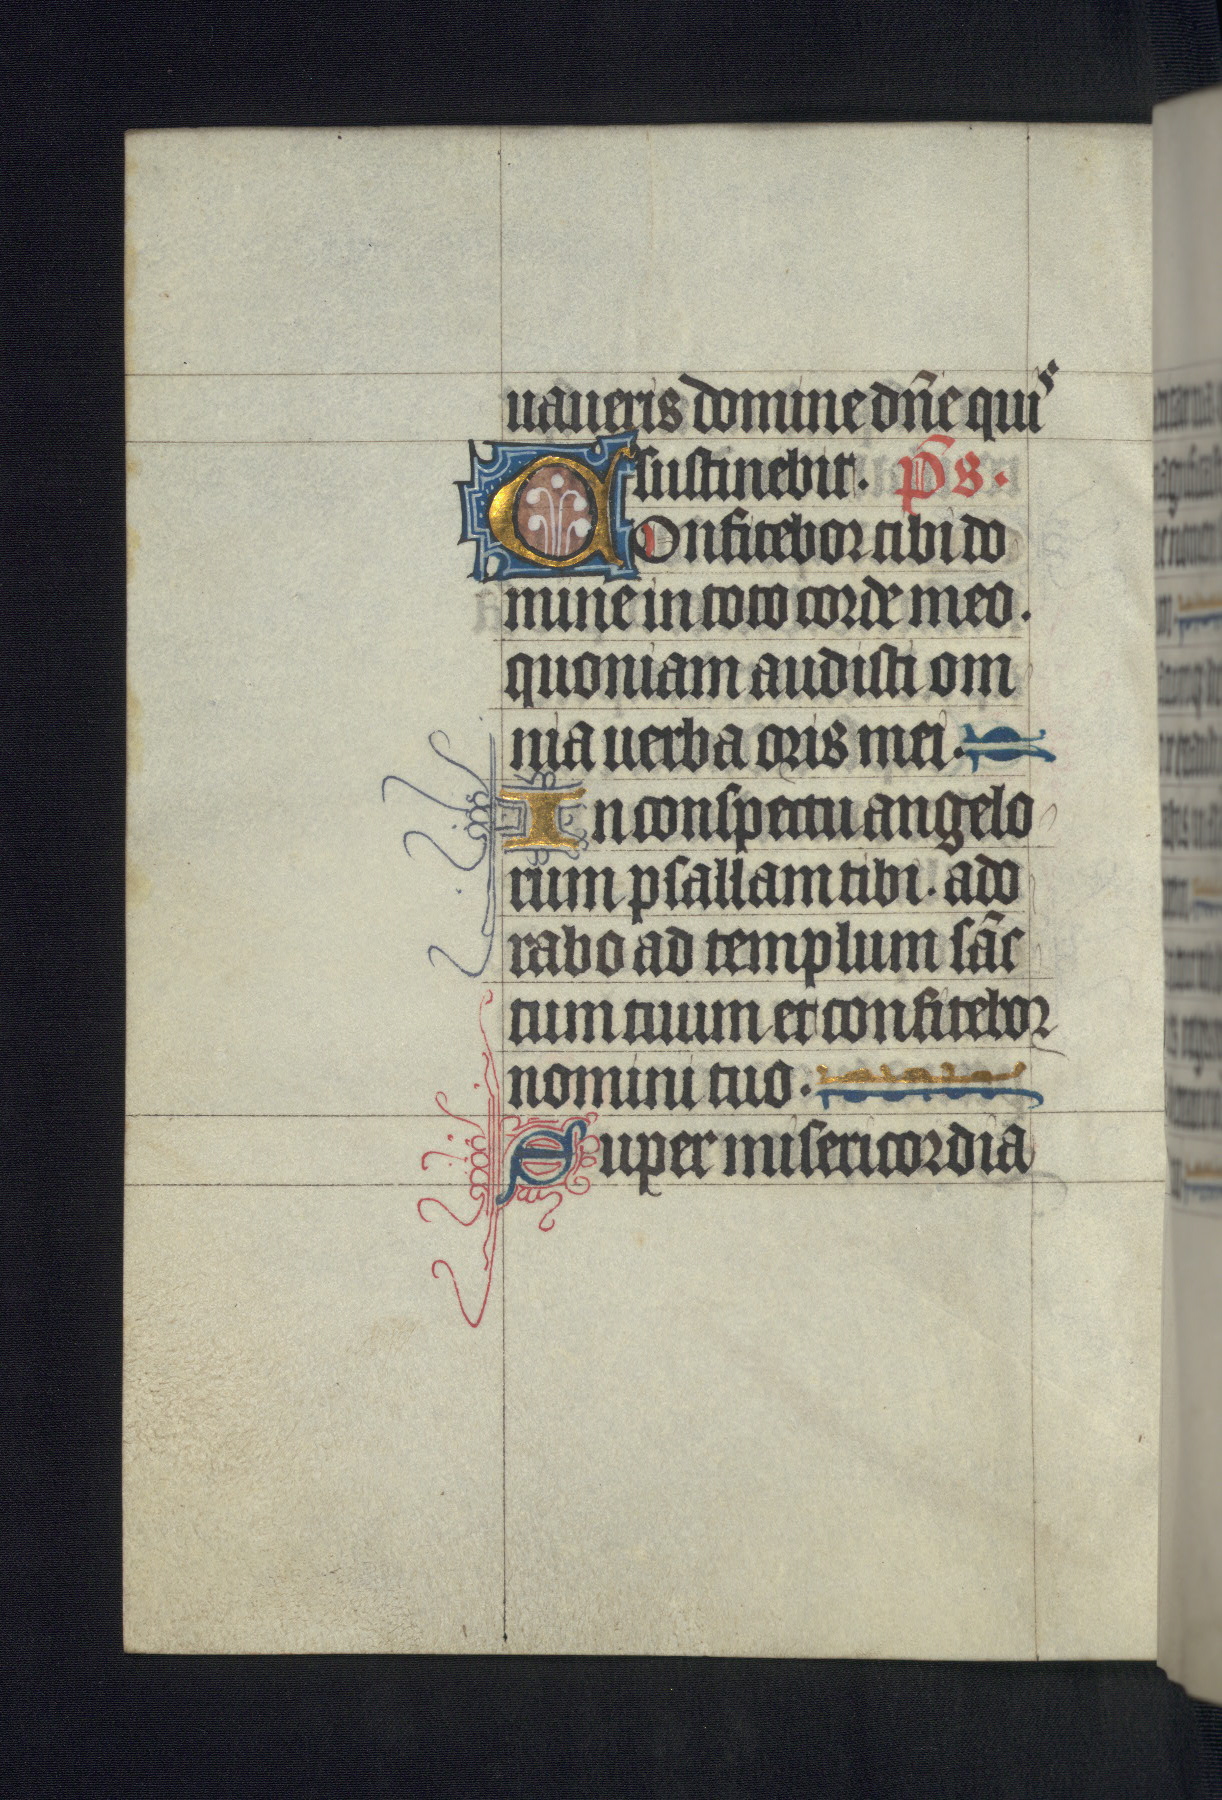 uaueris domine dñe quis
sustinebit. p̄s.
Confitebor tibi do
mine in toto corde meo.
quoniam audisti om
nia uerba oris mei.
In conspectu angelo
rum psallam tibi. ado
rabo ad templum sāc
tum tuum et confitebor
nomini tuo.
Super misericordia